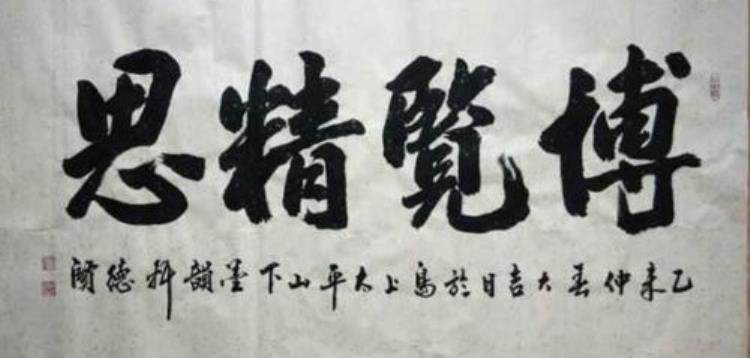 博覽精思
乙未仲春大吉日於島上太平山下墨韻軒德